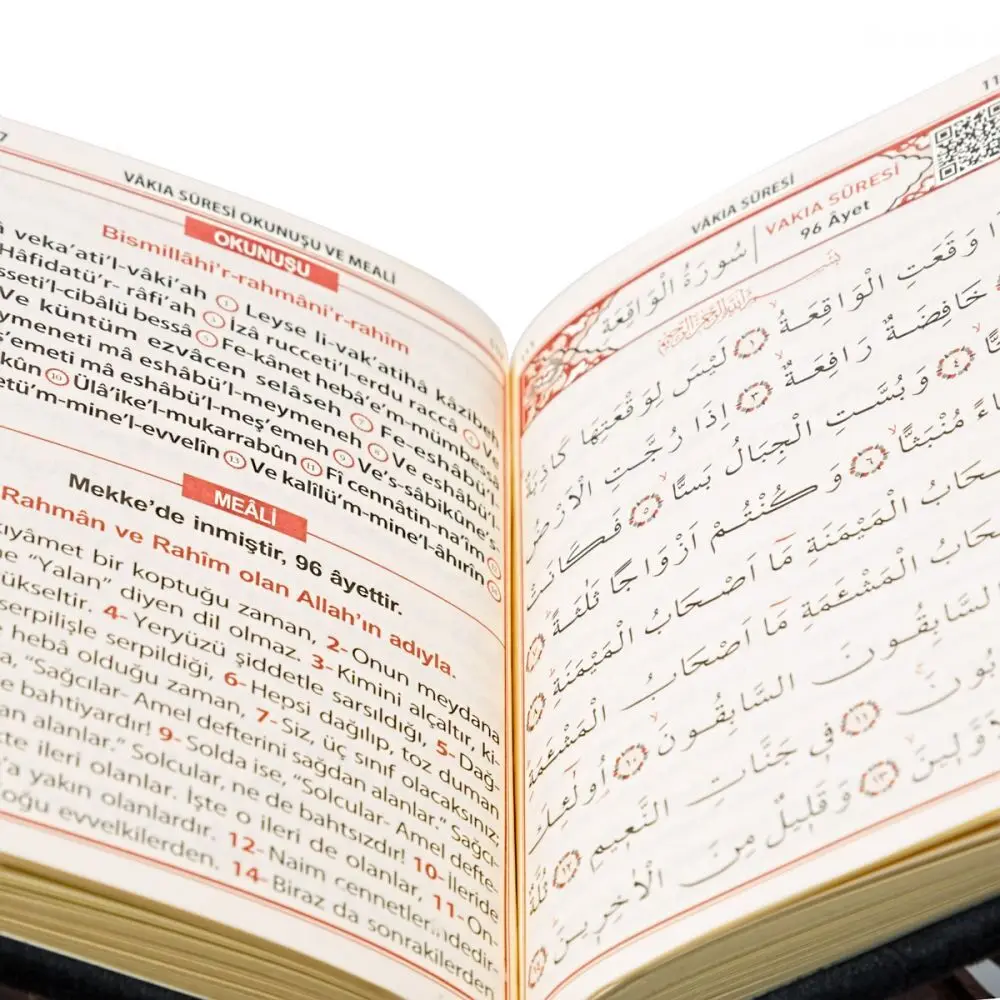 7
VÂKIA SÛRESİ OKUNUŞU VE MEALİ
OKUNUŞU
Bismillâhi'r-rahmâni'r-rahîm
veka'ati'l-vâki'ah ① Leyse li-vak'atihâ kâzibeh
Hâfidatü'r- râfi'ah İzâ rucceti'l-erdu raccâ Ve
bessâ Fe-kânet hebâ'e'm-mümbessâ
Ve küntüm ezvâcen selâseh ⑦ Fe-eshâbü'l-
meymeneti mâ eshâbü'l-meymeneh ⑧ Ve eshâbü'l-
ş'emeti mâ eshâbü'l-meş'emeh ⑨ Ve's-sâbikûne's-
⑩ Ülâ'ike'l-mukarrabûn ⑪ Fî cennâtin-na'îm
mine'l-evvelîn ⑬ Ve kalîlü'm-mine'l-âhırîn
MEÂLİ
Mekke'de inmiştir, 96 âyettir.
Rahmân ve Rahîm olan Allah'ın adıyla.
kıyâmet bir koptuğu zaman, 2- Onun meydana
"Yalan" diyen dil olmaz. 3- Kimini alçaltır, ki-
yükseltir. 4- Yeryüzü şiddetle sarsıldığı, 5- Dağ-
serpilişle serpildiği, 6- Hepsi dağılıp, toz duman
heba olduğu zaman, 7- Siz, üç sınıf olacaksınız;
"Sağcılar- Amel defterini sağdan alanlar." Sağcı-
bahtiyardır! 9- Solda ise, "Solcular- Amel defte-
alanlar." Solcular, ne de bahtsızdır! 10- İleride
ileri olanlar. İşte o ileri de olanlar, 11- On-
yakın olanlardır. 12- Naim cennetlerindedir-
evvelkilerden. 14- Biraz da sonrakilerden
VÂKIA SÛRESİ
VAKIA SÛRESİ
96 Âyet
سُورَةُ الْوَاقِعَةِ
وَقَعَتِ الْوَاقِعَةُ ١ لَيْسَ لِوَقْعَتِهَا كَاذِبَةٌ
خَافِضَةٌ رَافِعَةٌ ٣ اِذَا رُجَّتِ الْاَرْضُ
٤ وَبُسَّتِ الْجِبَالُ بَسًّا ٥ فَكَانَتْ
مُنْبَثًّا ٦ وَكُنْتُمْ اَزْوَاجًا ثَلٰثَةً ٧
الْمَيْمَنَةِ مَٓا اَصْحَابُ الْمَيْمَنَةِ ٨
الْمَشْـَٔمَةِ مَٓا اَصْحَابُ الْمَشْـَٔمَةِ
السَّابِقُونَ السَّابِقُونَ ١٠ اُولٰٓئِكَ
١١ فِى جَنَّاتِ النَّعِيمِ ١٢ ثُلَّةٌ
١٣ وَقَلِيلٌ مِنَ الْاٰخِرِينَ ١٤